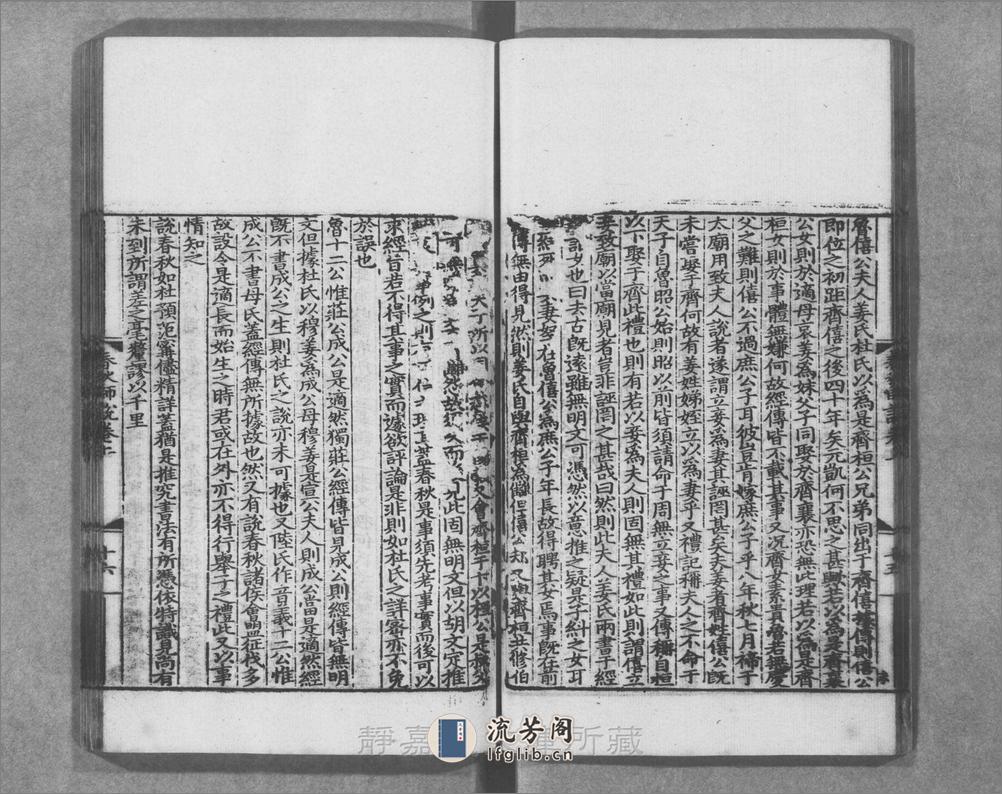 魯僖公夫人姜氏杜氏以為是齊桓公兄弟同出于齊僖據傳則僖公
即位之初距齊僖之後四十年矣元凱何不思之甚歟若以為是齊襄
公女則於適母哀姜為妹父子同娶於齊襄亦恐無此理若以為是齊
桓女則於事體無嫌何故經傳皆不載其事又况齊女素貴魯若無慶
父之難則僖公不過庶公子耳彼豈肯嫁庶公子乎八年秋七月禘于
太廟用致夫人說者遂謂立妾為妻其誣罔甚矣夫姜者齊姓僖公旣
未嘗娶于齊何故有姜姓娣姪立以為妻乎又禮記稱夫人之不命于
天子自魯昭公始則昭以前皆須請命于周無立妾之事又傳稱自桓
以下娶于齊此禮也則有若以妾為夫人則固無其禮如此則謂僖立
妾致廟以當廟見者豈非誣罔之甚哉曰然則此夫人姜氏兩書于經
女也曰去古旣遠雖無明文可憑然以意推之疑是子糾之女耳
在魯僖公為庶公子年長故得聘其女焉事旣在前
傳無由得見然則姜氏自與齊桓為讎但僖公又與齊桓共修伯
所以會齊桓于卞以桓公是
雖然故文而此固無明文但以胡文定推
例之則蓋春秋是事須先考事實而後可以
求經旨若不得其事之實而遽欲評論是非則如杜氏之詳審亦不免
於誤也
魯十二公惟莊公成公是適然獨莊公經傳皆見成公則經傳皆無明
文但據杜氏以穆姜為成公母穆姜是宣公夫人則成公當是適然經
旣不書成公之生則杜氏之說亦未可據也又陸氏作音義十二公惟
成公不書母氏蓋經傳無所據故也然又有說春秋諸侯會盟征伐多
故設令是適長而始生之時君或在外亦不得行舉子之禮此又以事
情知之
說春秋如杜預范甯儘精詳蓋猶是推究書法有所憑依特識見尚有
未到所謂差之毫釐謬以千里
春秋師說卷上
十六
靜嘉 所藏
流芳阁
lfglib.cn